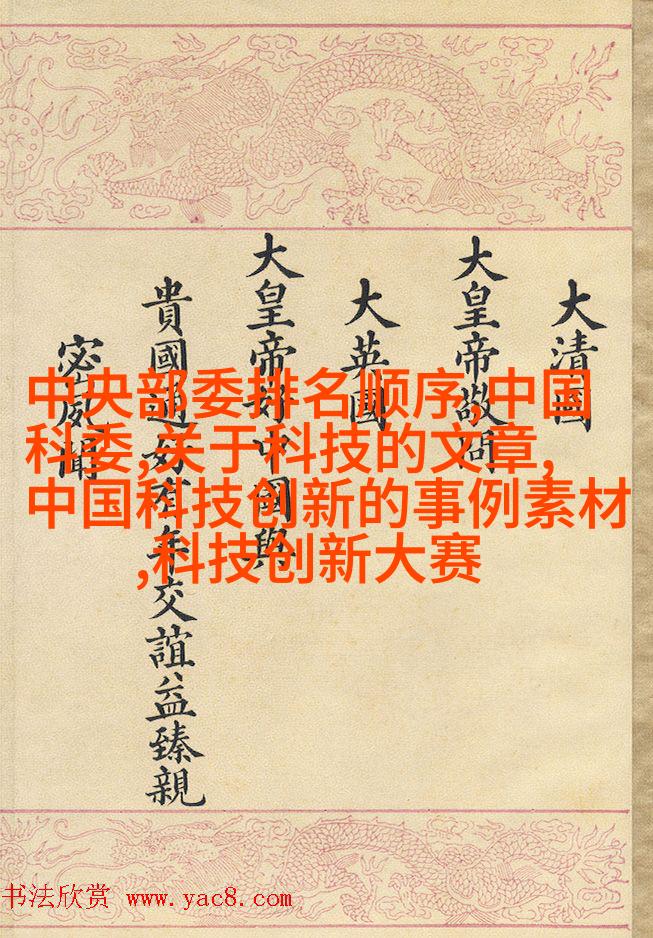 中央部委排名顺序,中国
科委,关于科技的文章,
中国科技创新的事例素材
,科技创新大赛
大清國
大皇帝敬問
大英國
大皇帝好中國與
貴國通好有年交誼益臻親
密夙聞
书法欣赏 www.yac8.com